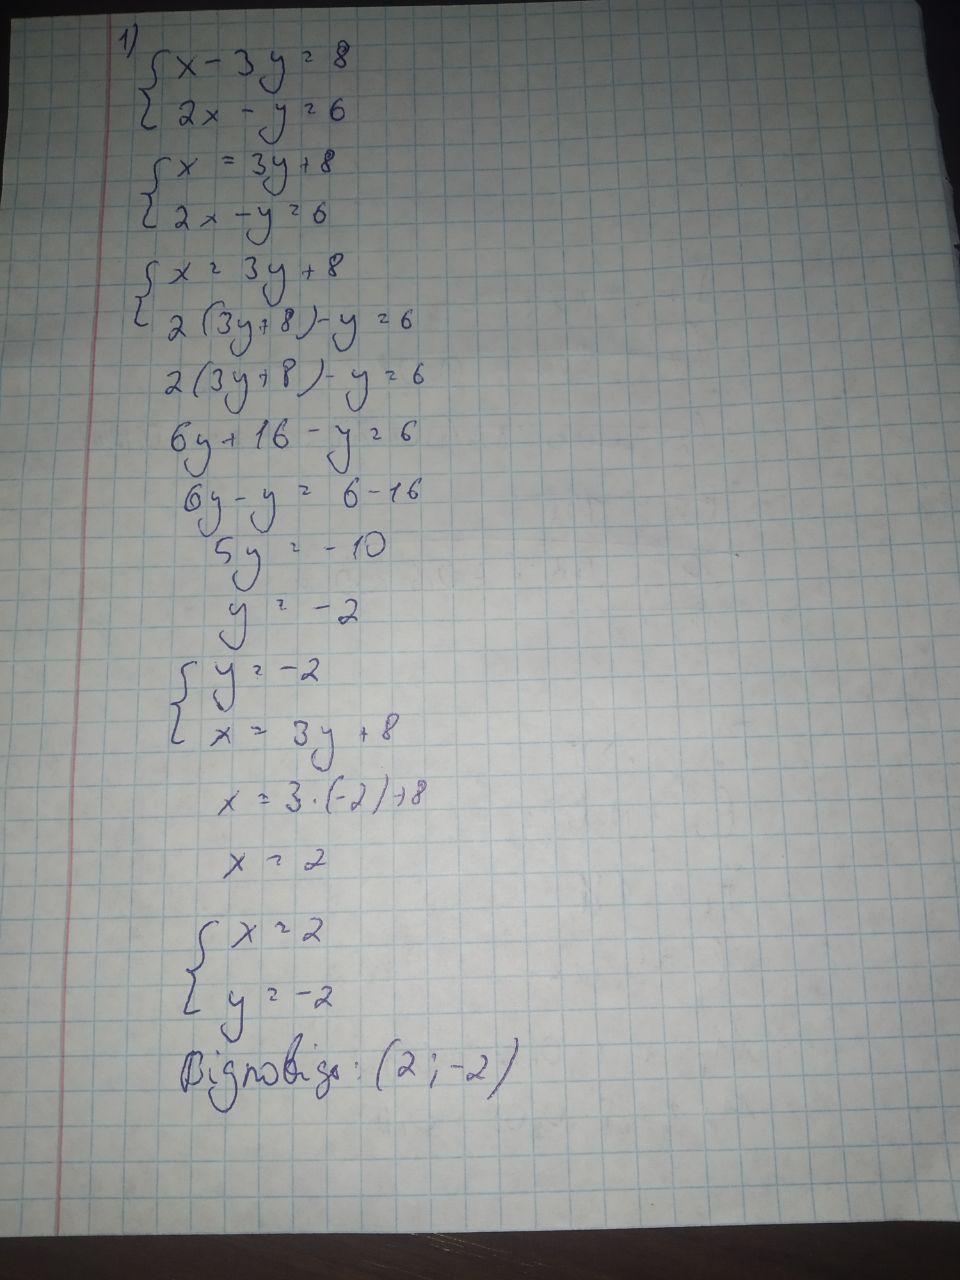 1)
{ x - 3y = 8
2x - y = 6
{ x = 3y + 8
2x - y = 6
{ x = 3y + 8
2 (3y + 8) - y = 6
2 (3y + 8) - y = 6
6y + 16 - y = 6
6y - y = 6 - 16
5y = - 10
y = - 2
{ y = - 2
x = 3y + 8
x = 3 · (-2) + 8
x = 2
{ x = 2
y = - 2
Відповідь: (2 ; -2)